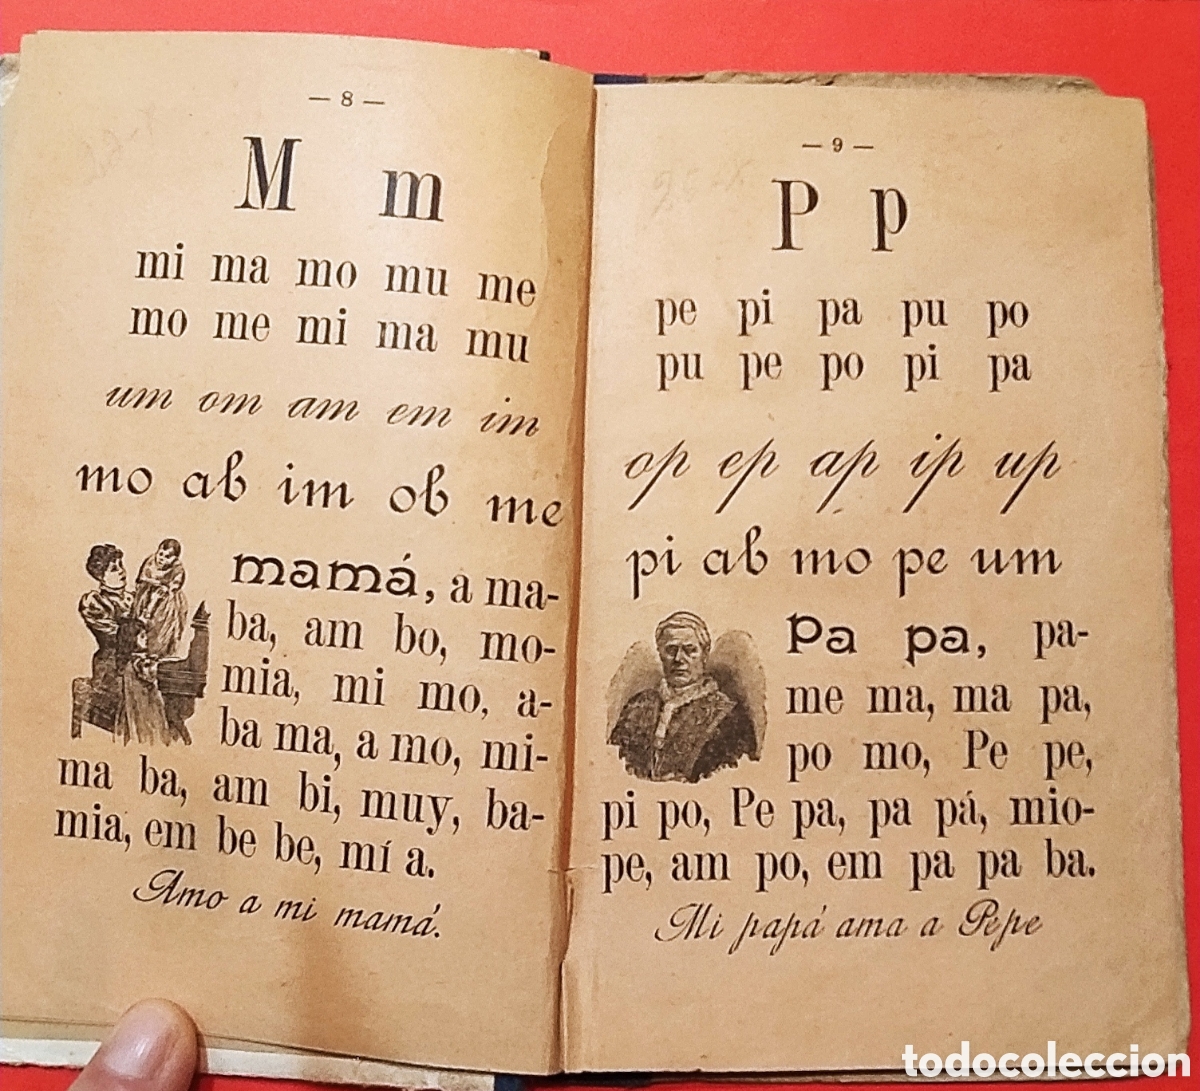 — 8 —
M m
mi ma mo mu me
mo me mi ma mu
um om am em im
mo ab im ob me
mamá, a ma-
ba, am bo, mo-
mia, mi mo, a-
ba ma, a mo, mi-
ma ba, am bi, muy, ba-
mia, em be be, mí a.
Amo a mi mamá.
— 9 —
P p
pe pi pa pu po
pu pe po pi pa
op ep ap ip up
pi ab mo pe um
Pa pa, pa-
me ma, ma pa,
po mo, Pe pe,
pi po, Pe pa, pa pá, mio-
pe, am po, em pa pa ba.
Mi papá ama a Pepe
todocoleccion